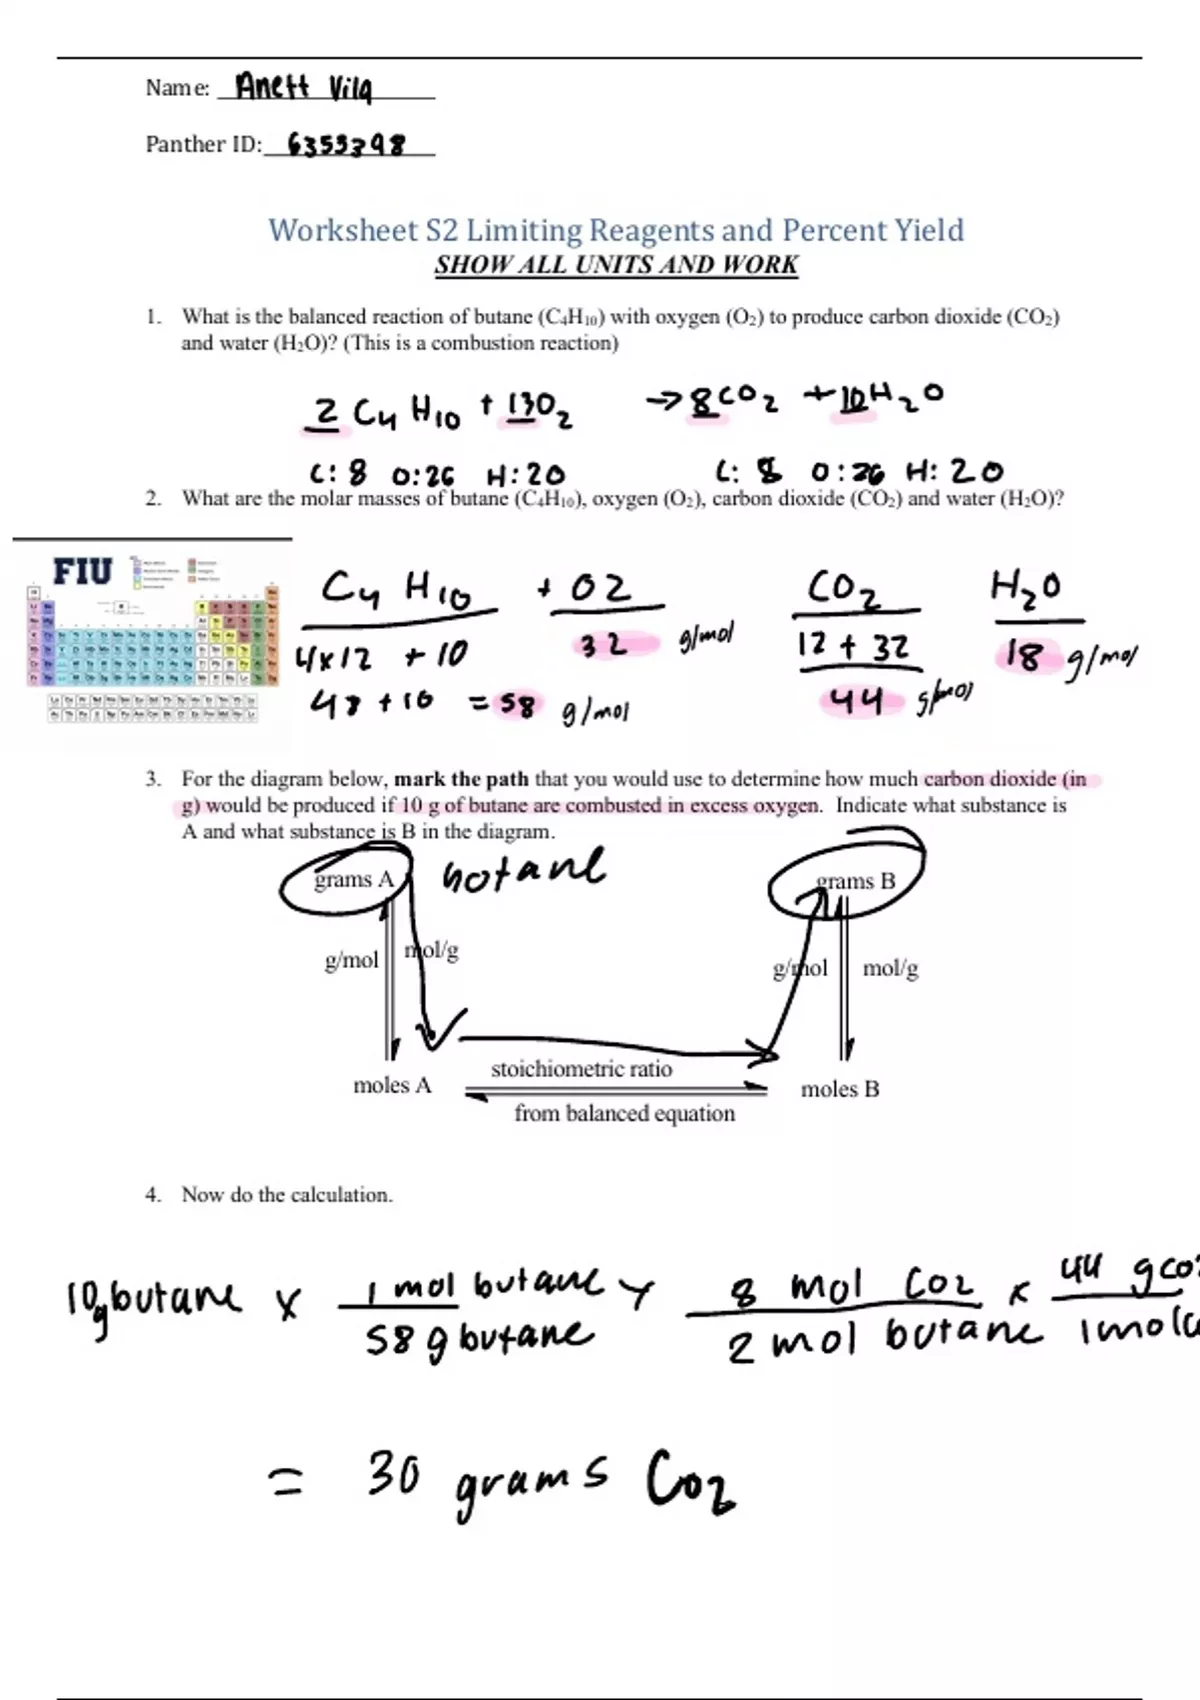 Name: Anett Vila
Panther ID: 6353398
Worksheet S2 Limiting Reagents and Percent Yield
SHOW ALL UNITS AND WORK
1. What is the balanced reaction of butane (C₄H₁₀) with oxygen (O₂) to produce carbon dioxide (CO₂)
and water (H₂O)? (This is a combustion reaction)
2 C₄ H₁₀ + 13O₂ → 8CO₂ + 10H₂O
C: 8 O:26 H:20 C: 8 O:26 H: 20
2. What are the molar masses of butane (C₄H₁₀), oxygen (O₂), carbon dioxide (CO₂) and water (H₂O)?
FIU
C₄ H₁₀ + O2 CO₂ H₂O
4x12 + 10 32 g/mol 12 + 32 18 g/mol
48 + 10 = 58 g/mol 44 g/mol
3. For the diagram below, mark the path that you would use to determine how much carbon dioxide (in
g) would be produced if 10 g of butane are combusted in excess oxygen. Indicate what substance is
A and what substance is B in the diagram.
grams A butane grams B
g/mol mol/g g/mol mol/g
stoichiometric ratio
moles A moles B
from balanced equation
4. Now do the calculation.
10g butane x 1 mol butane x 8 mol CO2 x 44 g CO2
58 g butane 2 mol butane 1 mol
= 30 grams CO₂